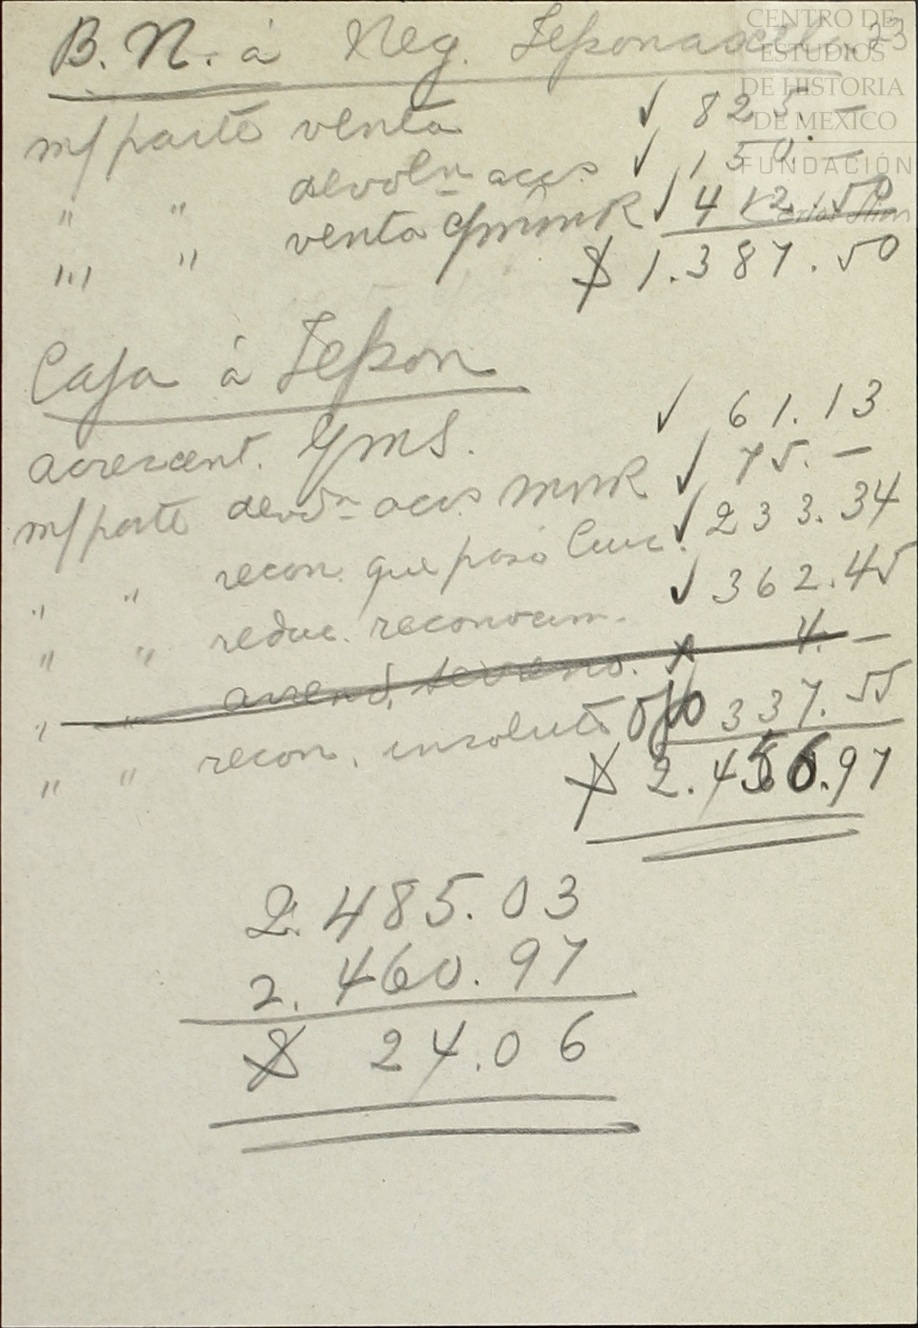 B.N. à Neg. Teponaxtla 23
CENTRO DE
ESTUDIOS
DE HISTORIA
DE MÉXICO
FUNDACIÓN
Carlos Slim
m/ parte venta ✓ 825.—
" " devoln acc.s ✓ 150.—
"' " venta GmmR ✓ 412.50
$ 1.387.50
Caja à Tepon
acrescent. GMS. ✓ 61.13
m/parte devon accs MMR ✓ 75.—
" " recon. que pasó Cuic. ✓ 233.34
" " reduc. reconocim. ✓ 362.45
" " arrend. terreno. x 4.—
" " recon. insoluto 337.55
$ 2.456.97
2.485.03
2.460.97
$ 24.06